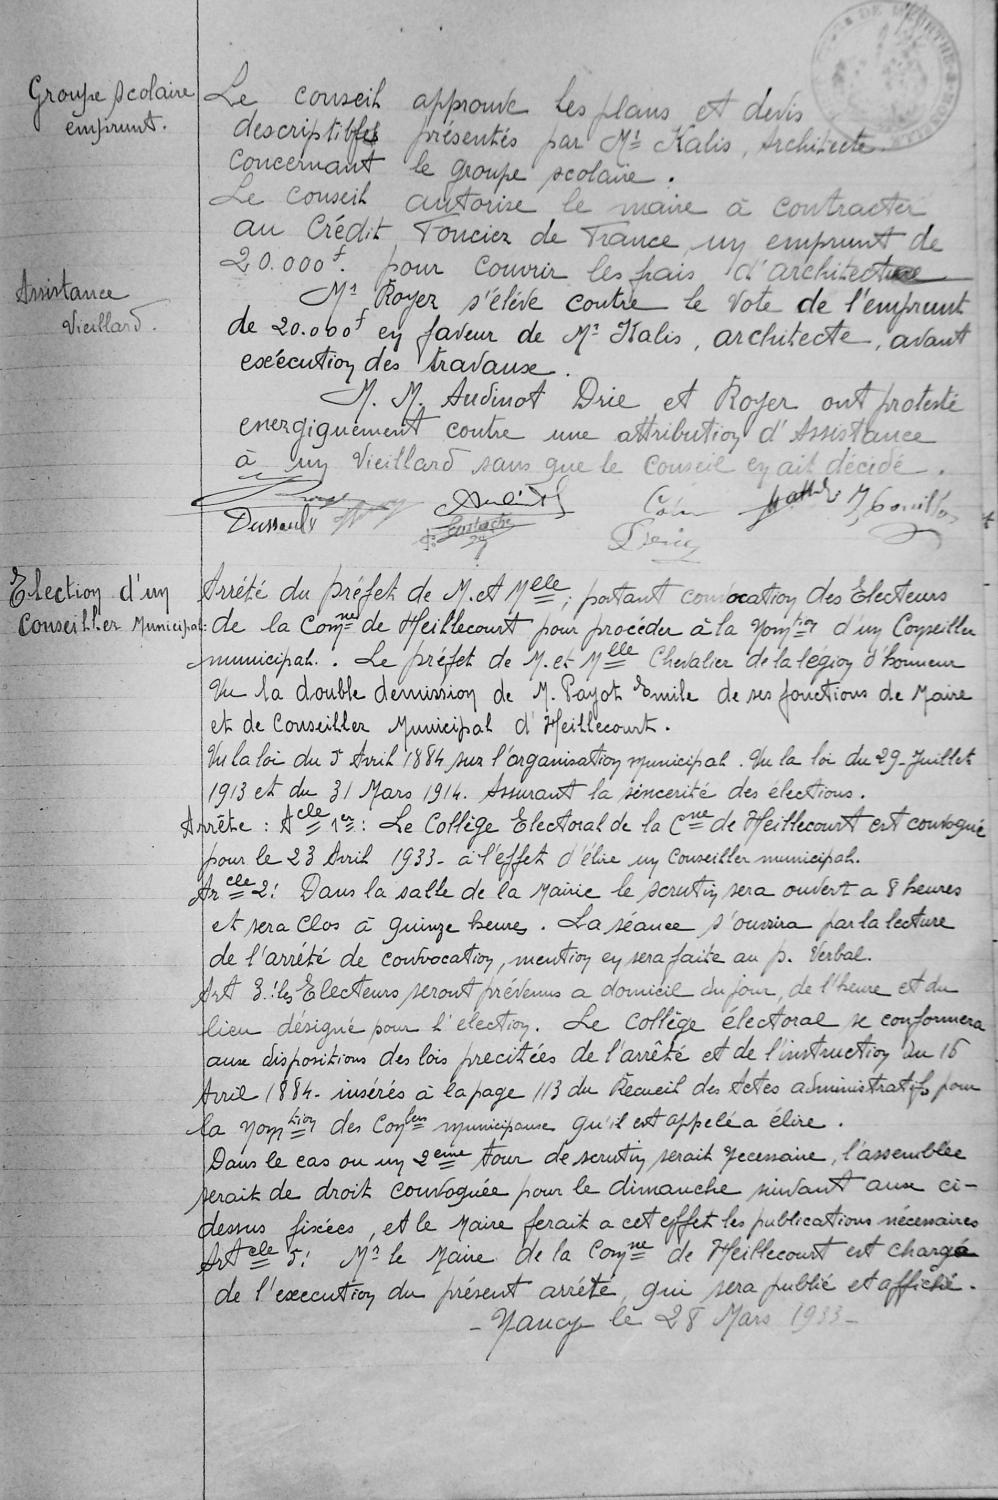 Groupe scolaire
emprunt.
Le conseil approuve les plans et devis
descriptifs présentés par Mr Kalis, Architecte.
concernant le groupe scolaire.
Le conseil autorise le maire à contracter
au Crédit Foncier de France un emprunt de
20.000f. pour couvrir les frais d'architecture
Assistance
Vieillard.
Mr Royer s'élève contre le vote de l'emprunt
de 20.000f en faveur de Mr Kalis, architecte, avant
exécution des travaux.
M. M. Audinot Drie et Royer ont protesté
energiquement contre une attribution d'Assistance
à un Vieillard sans que le Conseil en ait décidé.
Dussaulx
Election d'un
Conseiller Municipal:
Arrêté du préfet de M. et Melle; portant convocation des Electeurs
de la Comne de Heillecourt pour procéder à la nomtion d'un Conseiller
municipal. . Le préfet de M. et Melle Chevalier de la légion d'honneur
Vu la double demission de M. Payot Emile de ses fonctions de Maire
et de Conseiller Municipal d'Heillecourt.
Vu la loi du 5 Avril 1884 sur l'organisation municipal. Vu la loi du 29 Juillet
1913 et du 31 Mars 1914. Assurant la sincerité des élections.
Arrête: Acle 1er: Le Collège Electoral de la Cne de Heillecourt est convoqué
pour le 23 Avril 1933 - à l'effet d'élire un Conseiller municipal.
Arcle 2: Dans la salle de la Mairie le scrutin sera ouvert a 8 heures
et sera clos à quinze heures. La séance s'ouvrira par la lecture
de l'arrêté de convocation, mention en sera faite au p. Verbal.
Art 3: les Electeurs seront prévenus a domicil du jour, de l'heure et du
lieu désigné pour l'election. Le Collège électoral se conformera
aux dispositions des lois precitées de l'arrêté et de l'instruction du 16
Avril 1884 - insérés à la page 113 du Recueil des Actes administratifs, pour
la nomtion des Conlers municipaux qu'il est appelé a élire.
Dans le cas ou un 2eme tour de scrutin serait necessaire, l'assemblée
serait de droit convoquée pour le dimanche suivant aux ci-
dessus fixées, et le Maire ferait a cet effet les publications nécessaires
Artcle 5: Mr le Maire de la Comne de Heillecourt est chargé
de l'execution du présent arrêté, qui sera publié et affiché.
- Nancy le 28 Mars 1933 -